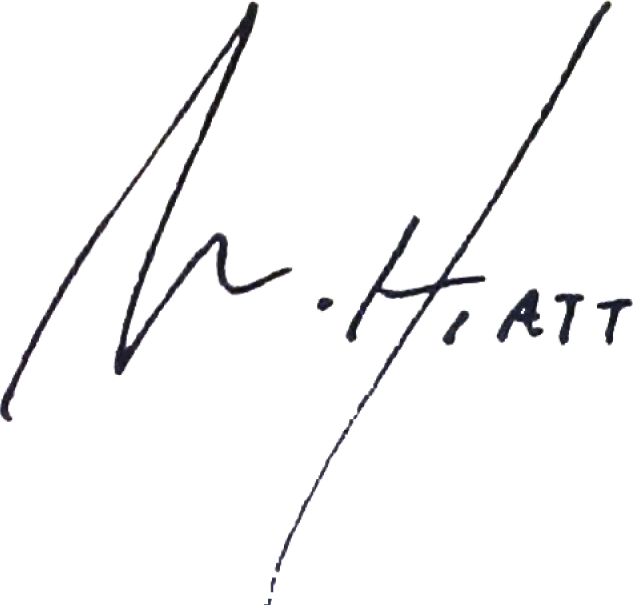 M. HIATT